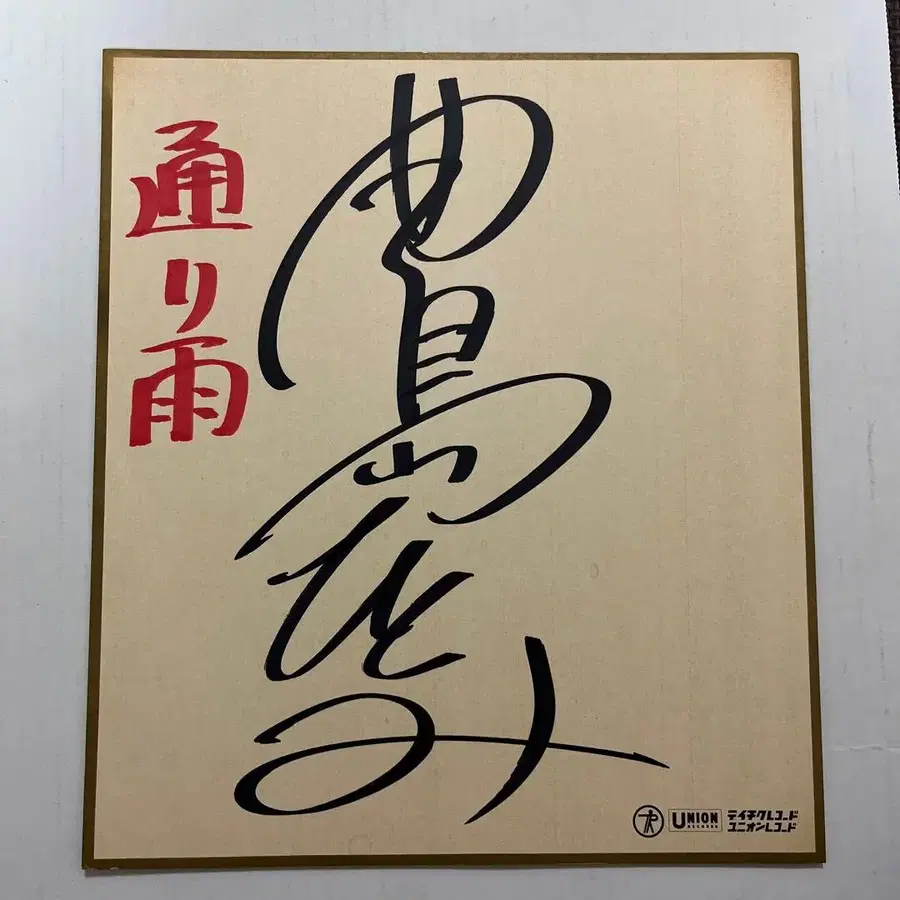 島ひとみ
通り雨
UNION
RECORDS
テイチクレコード
ユニオンレコード